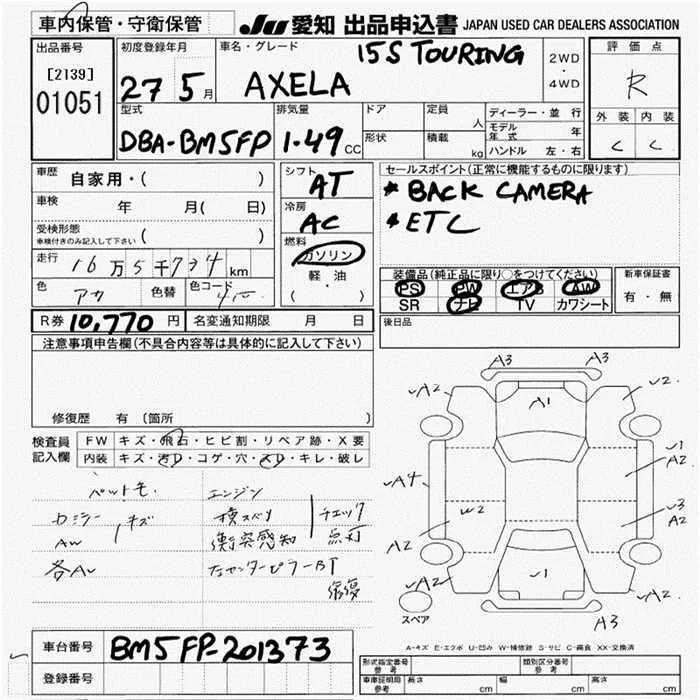 車内保管・守衛保管
JU 愛知 出品申込書 JAPAN USED CAR DEALERS ASSOCIATION
出品番号
[2139]
01051
初度登録年月
27 5月
車名・グレード
15S TOURING
AXELA
2WD
・
4WD
評価点
R
外装 内装
C C
型式
DBA-BM5FP
排気量
1.49 CC
ドア
形状
定員 人
積載 kg
ディーラー・並行
モデル年式 年
ハンドル 左・右
車歴 自家用・( )
車検 年 月( 日)
受検形態
車検付きのみ記入して下さい ( )
走行 16万5千734km
色 アカ 色替 色コード
シフト
AT
冷房
AC
燃料
ガソリン
軽油
( ・ )
セールスポイント(正常に機能するものに限ります)
* BACK CAMERA
* ETC
装備品(純正品に限り○をつけてください)
PS PW エアB AW
SR ナビ TV カワシート
新車保証書
有・無
R券 10,770円 名変通知期限 月 日
後日品
注意事項申告欄(不具合内容等は具体的に記入して下さい)
修復歴 有 〔箇所 〕
検査員記入欄
FW キズ・飛石・ヒビ割・リペア跡・X要
内装 キズ・汚レ・コゲ・穴・スレ・キレ・破レ
ペットモ
カミラー キズ
AW
各AU
エンジン
横スベリ チェック
衝突感知 点灯
左センターピラーBT
修復
A3 A3
A2 A1 √2
√1
A2
A4
W2
√3
A2
A2
A2 √1 A2
スペア
A3
A-キズ E-エクボ U-凹み W-補修跡 S-サビ C-腐食 XX-交換済
車台番号 BM5FP-201373
登録番号
形式指定番号
参考
類別区分番号
参考
車庫証明用
参考
長さ cm 幅 cm 高さ cm